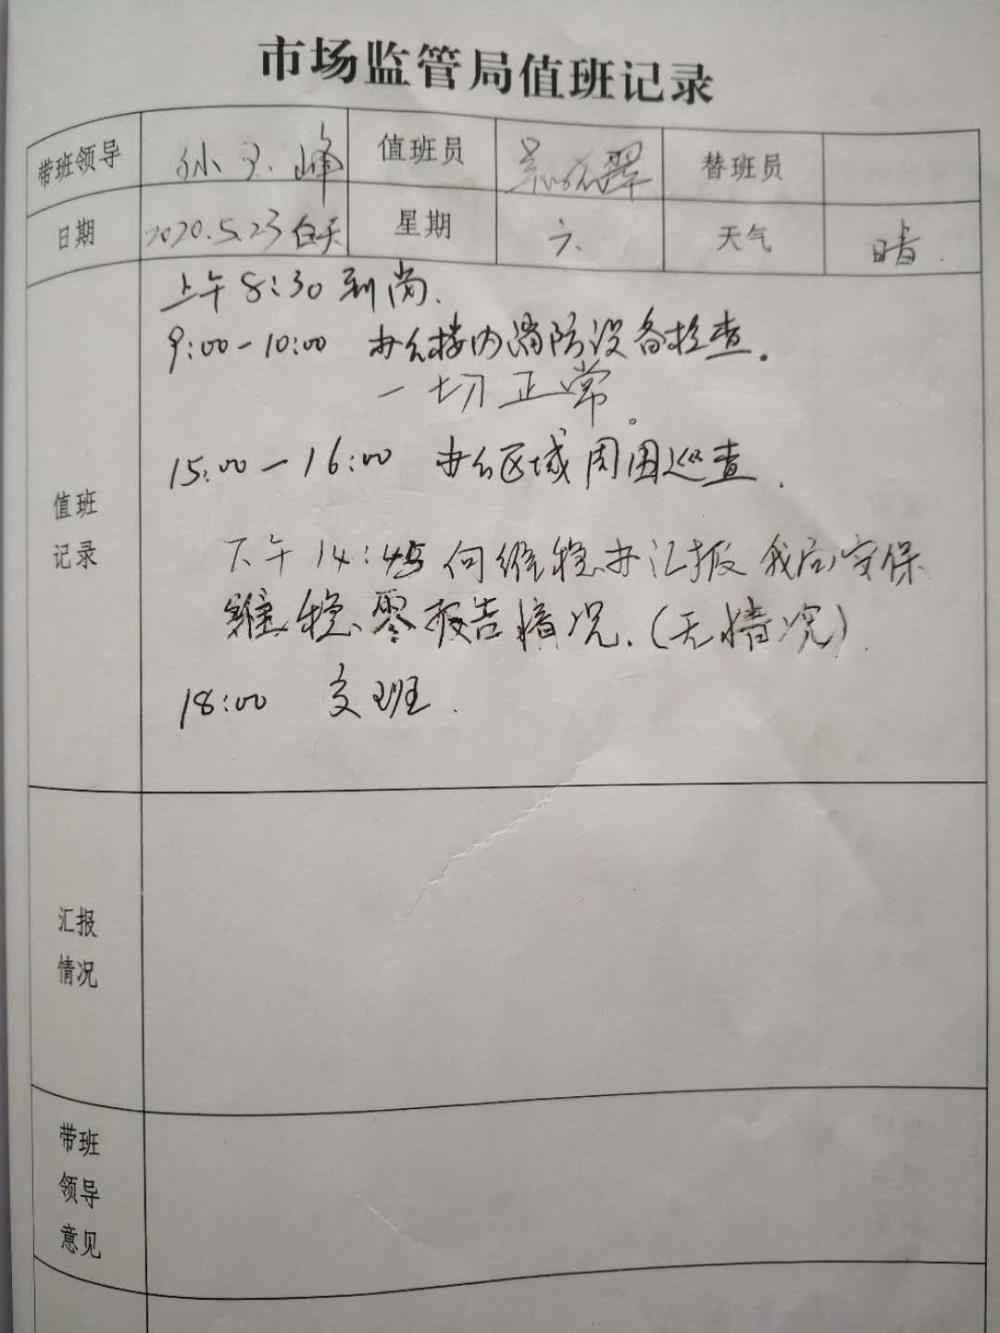 市场监管局值班记录
带班领导 孙玉峰 值班员 替班员
日期 2020.5.23白天 星期 六. 天气 晴.
值班记录
上午8:30到岗.
9:00-10:00 办公楼内消防设备检查.
一切正常。
15:00-16:00 办公区域周围巡查.
下午14:45向维稳办汇报我局安保
维稳零报告情况.(无情况).
18:00 交班.
汇报
情况
带班
领导
意见